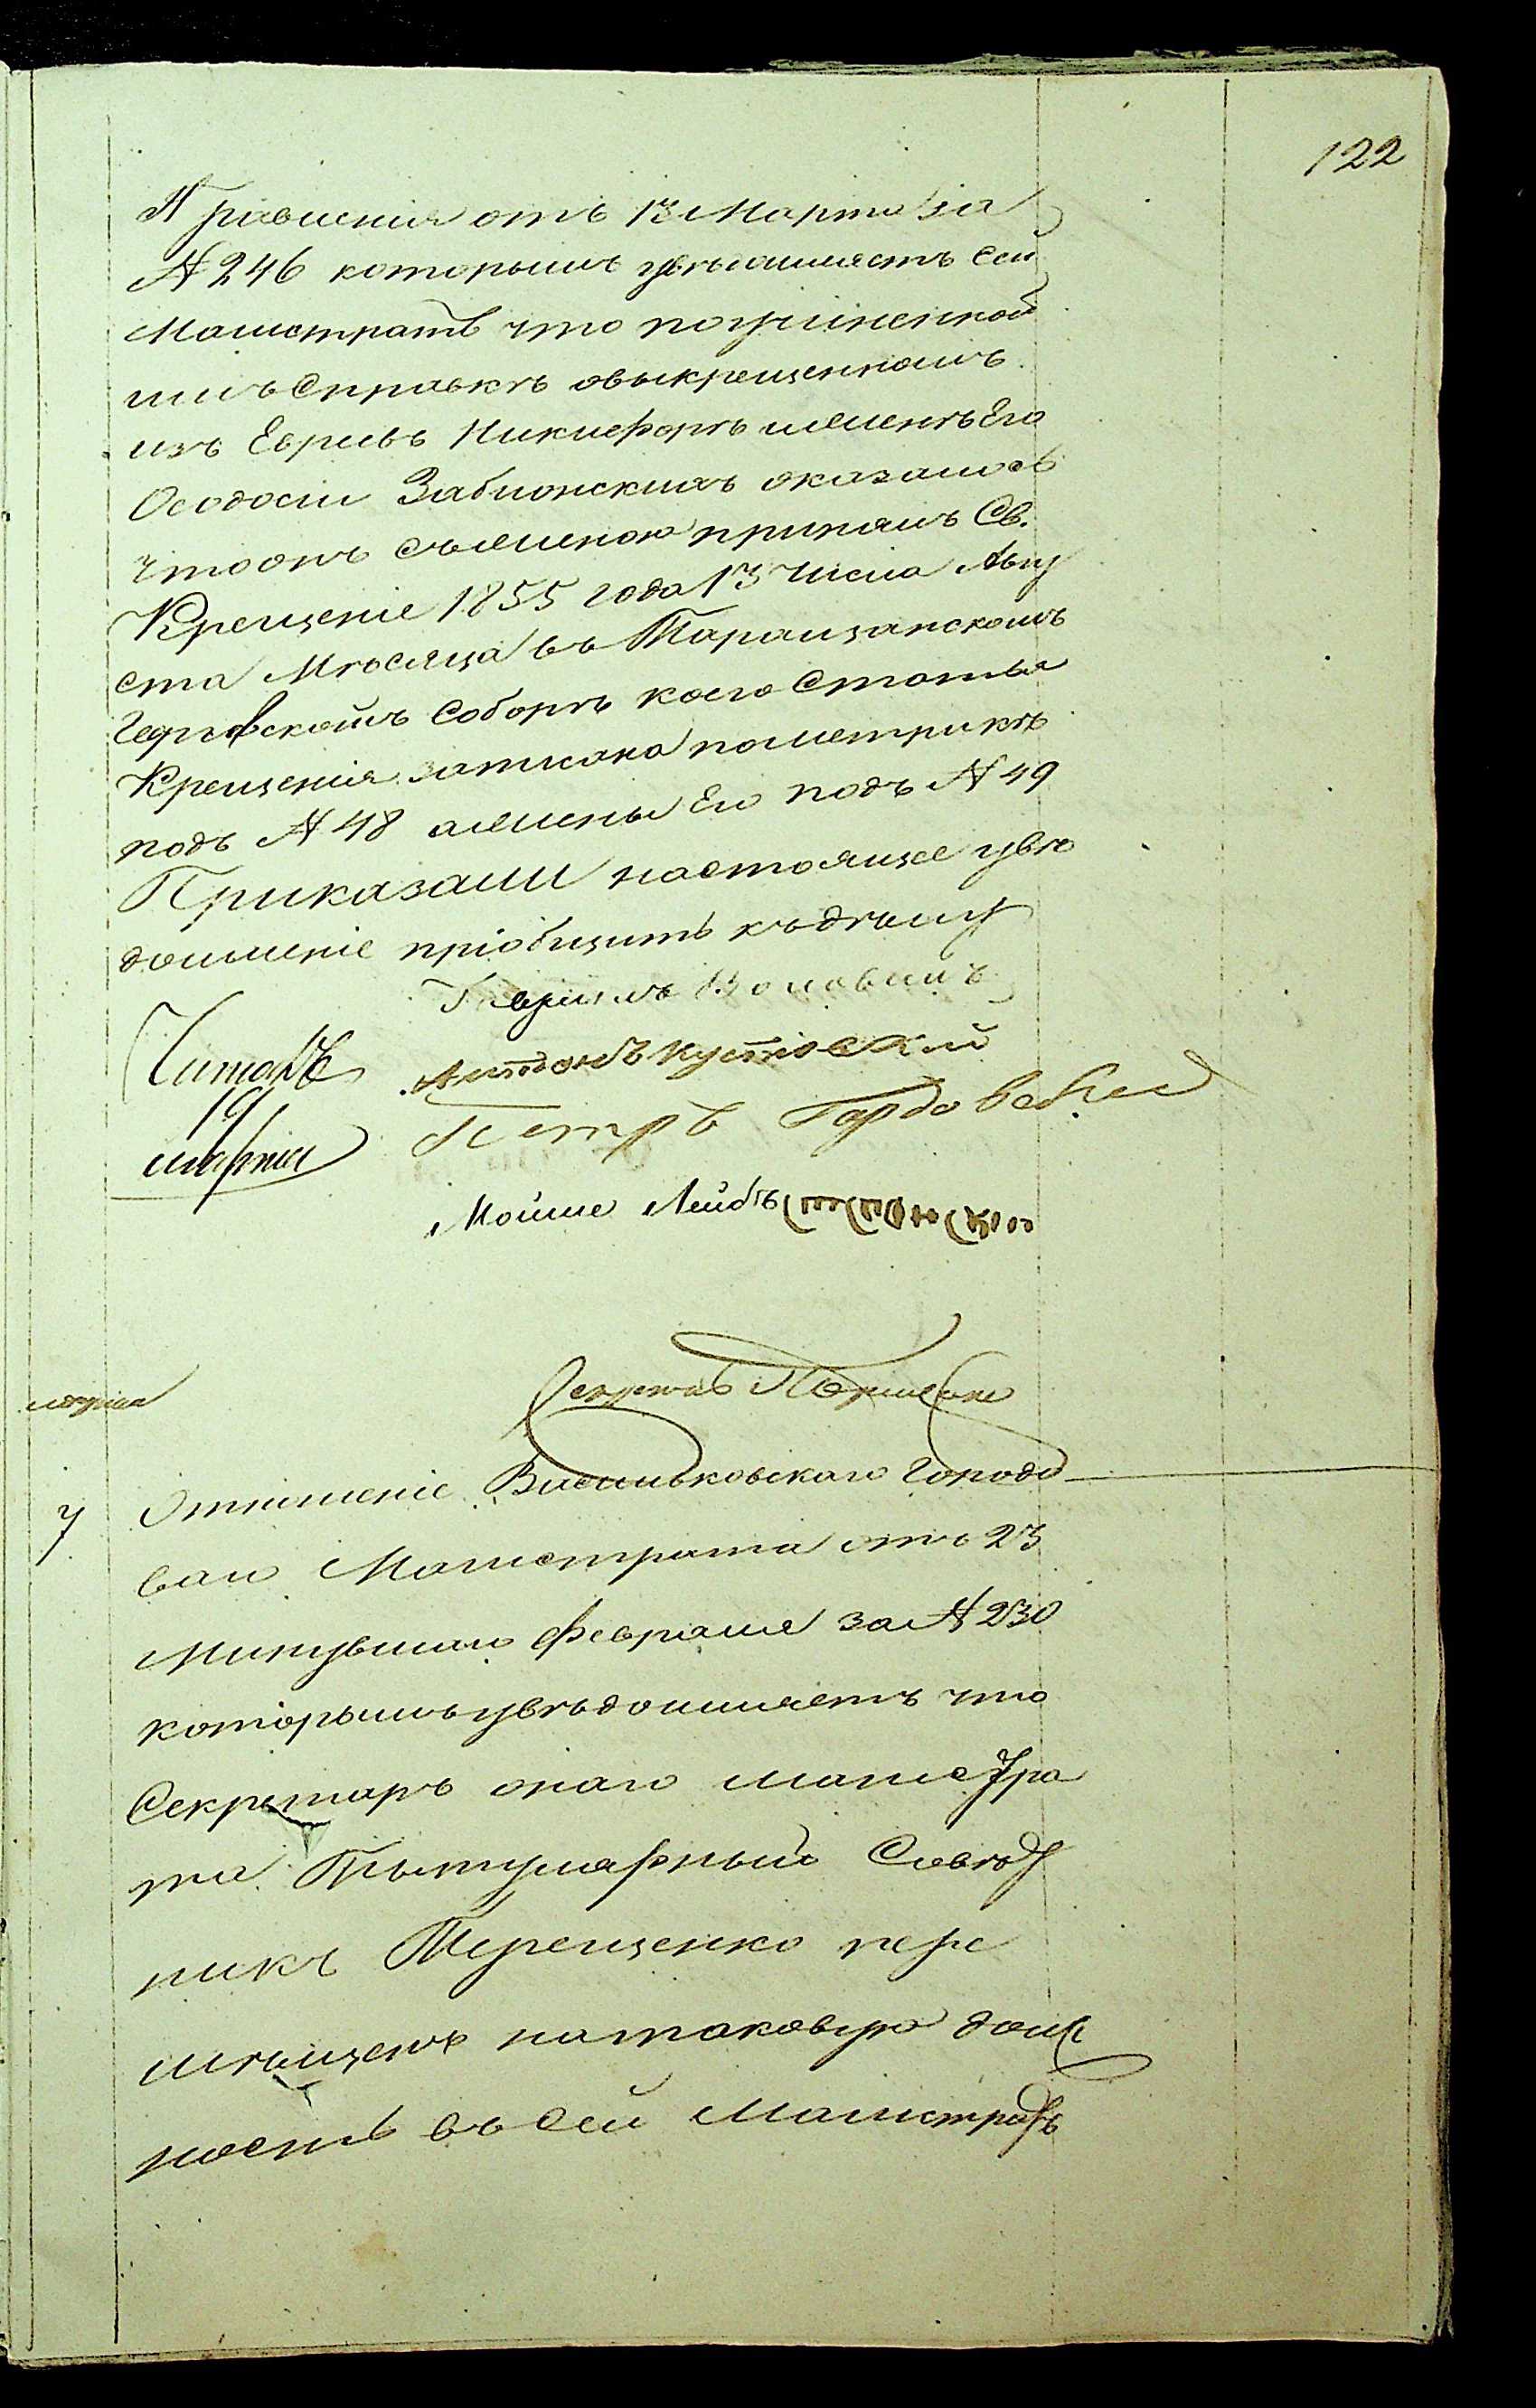 122
Правленія отъ 13 Марта за
№ 246 которымъ увѣдомляетъ сей
Магистратъ что поучиненной
имъ Справкѣ овыкрещенномъ
изъ Евреевъ Никифорѣ иженѣ Его
Ѳеодосіи Заблонскихъ оказалось
чтоонъ съженою принялъ Св.
Крещеніе 1855 года 13 числа Авгу
ста Мѣсяца въ Таращанскомъ
Георгіевскомъ Соборѣ коего Статья
Крещенія записана пометрикѣ
подъ № 48 ажены Его подъ № 49
Приказали настоящее увѣ
домленіе пріобщить къдѣлу
Антонъ Кутковский
Читалъ
19
марта
Петръ
Мойше Лейбъ
марта
7 Отношеніе Васильковскаго Городо
ваго Магистрата отъ 23
Минувшаго Февраля за № 230
которымъувѣдомляетъ что
Секретарь онаго Магистра
та Тытулярный Совѣт
никъ Терещенко пере
мѣщенъ натаковую долж
ность въ Сей Магистратъ